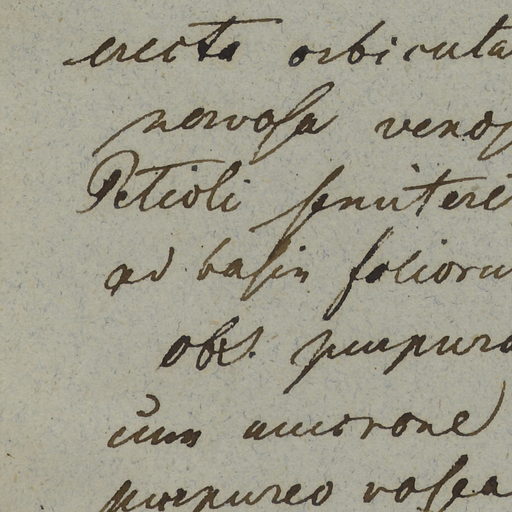 erecta orbicula
nervosa venos
Petioli semitere
ad basin folioru
obs. purpura
cum mucrone
purpureo rosea